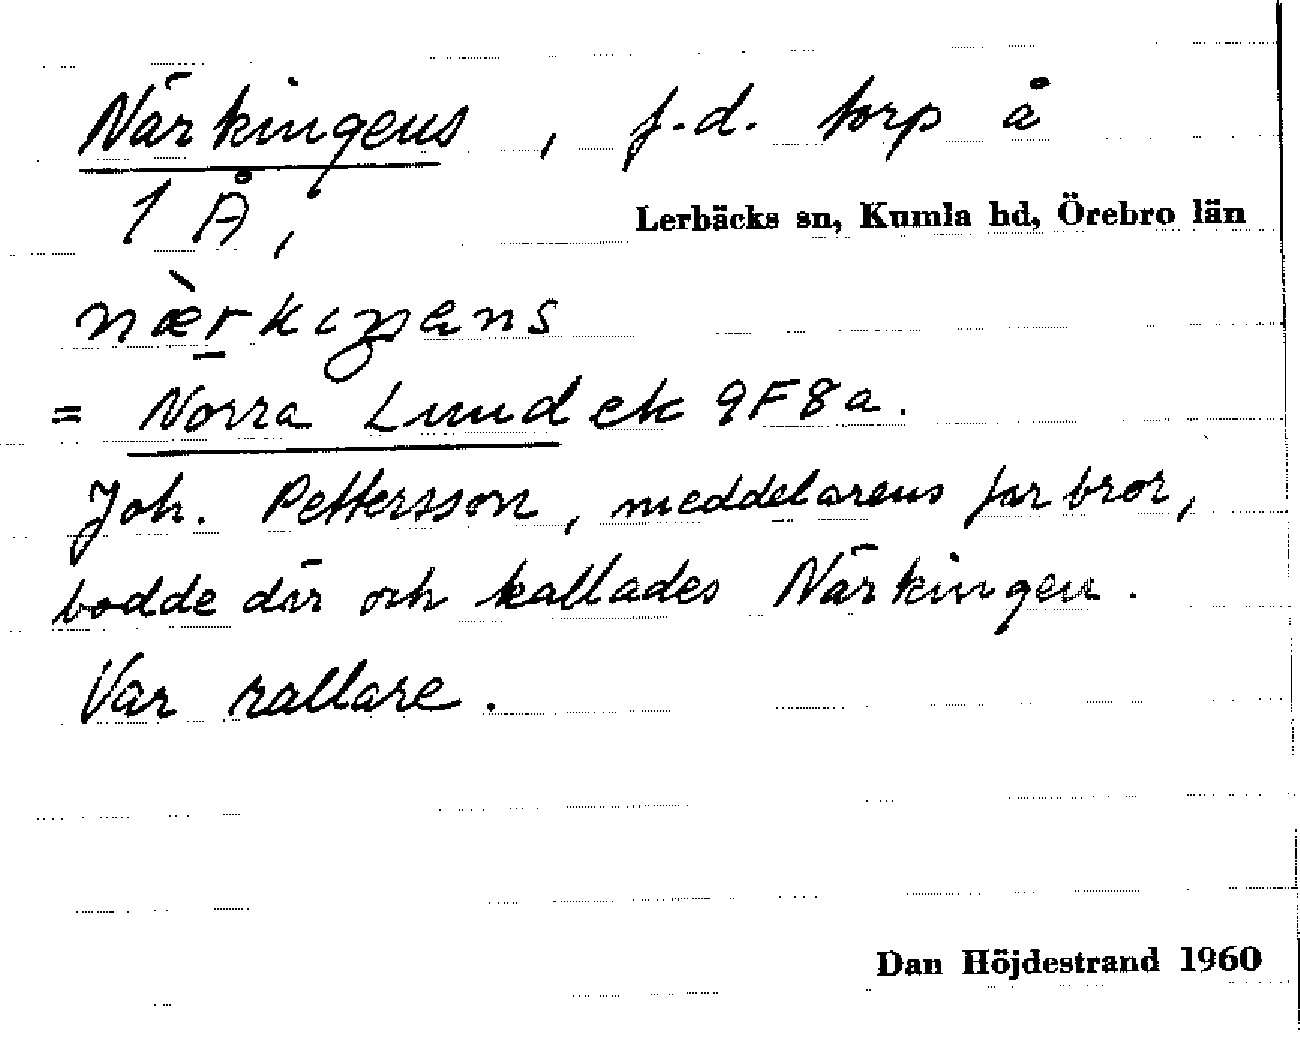 Närkingens, f.d. torp å
1 Å,
Lerbäcks sn, Kumla hd, Örebro län
næ̀r̠kiŋəns
= Norra Lund ek 9F8a.
Joh. Pettersson, meddelarens farbror,
bodde där och kallades Närkingen.
Var rallare.
Dan Höjdestrand 1960